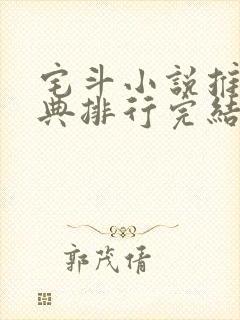 宅斗小說推
典排行完結
郭茂倩